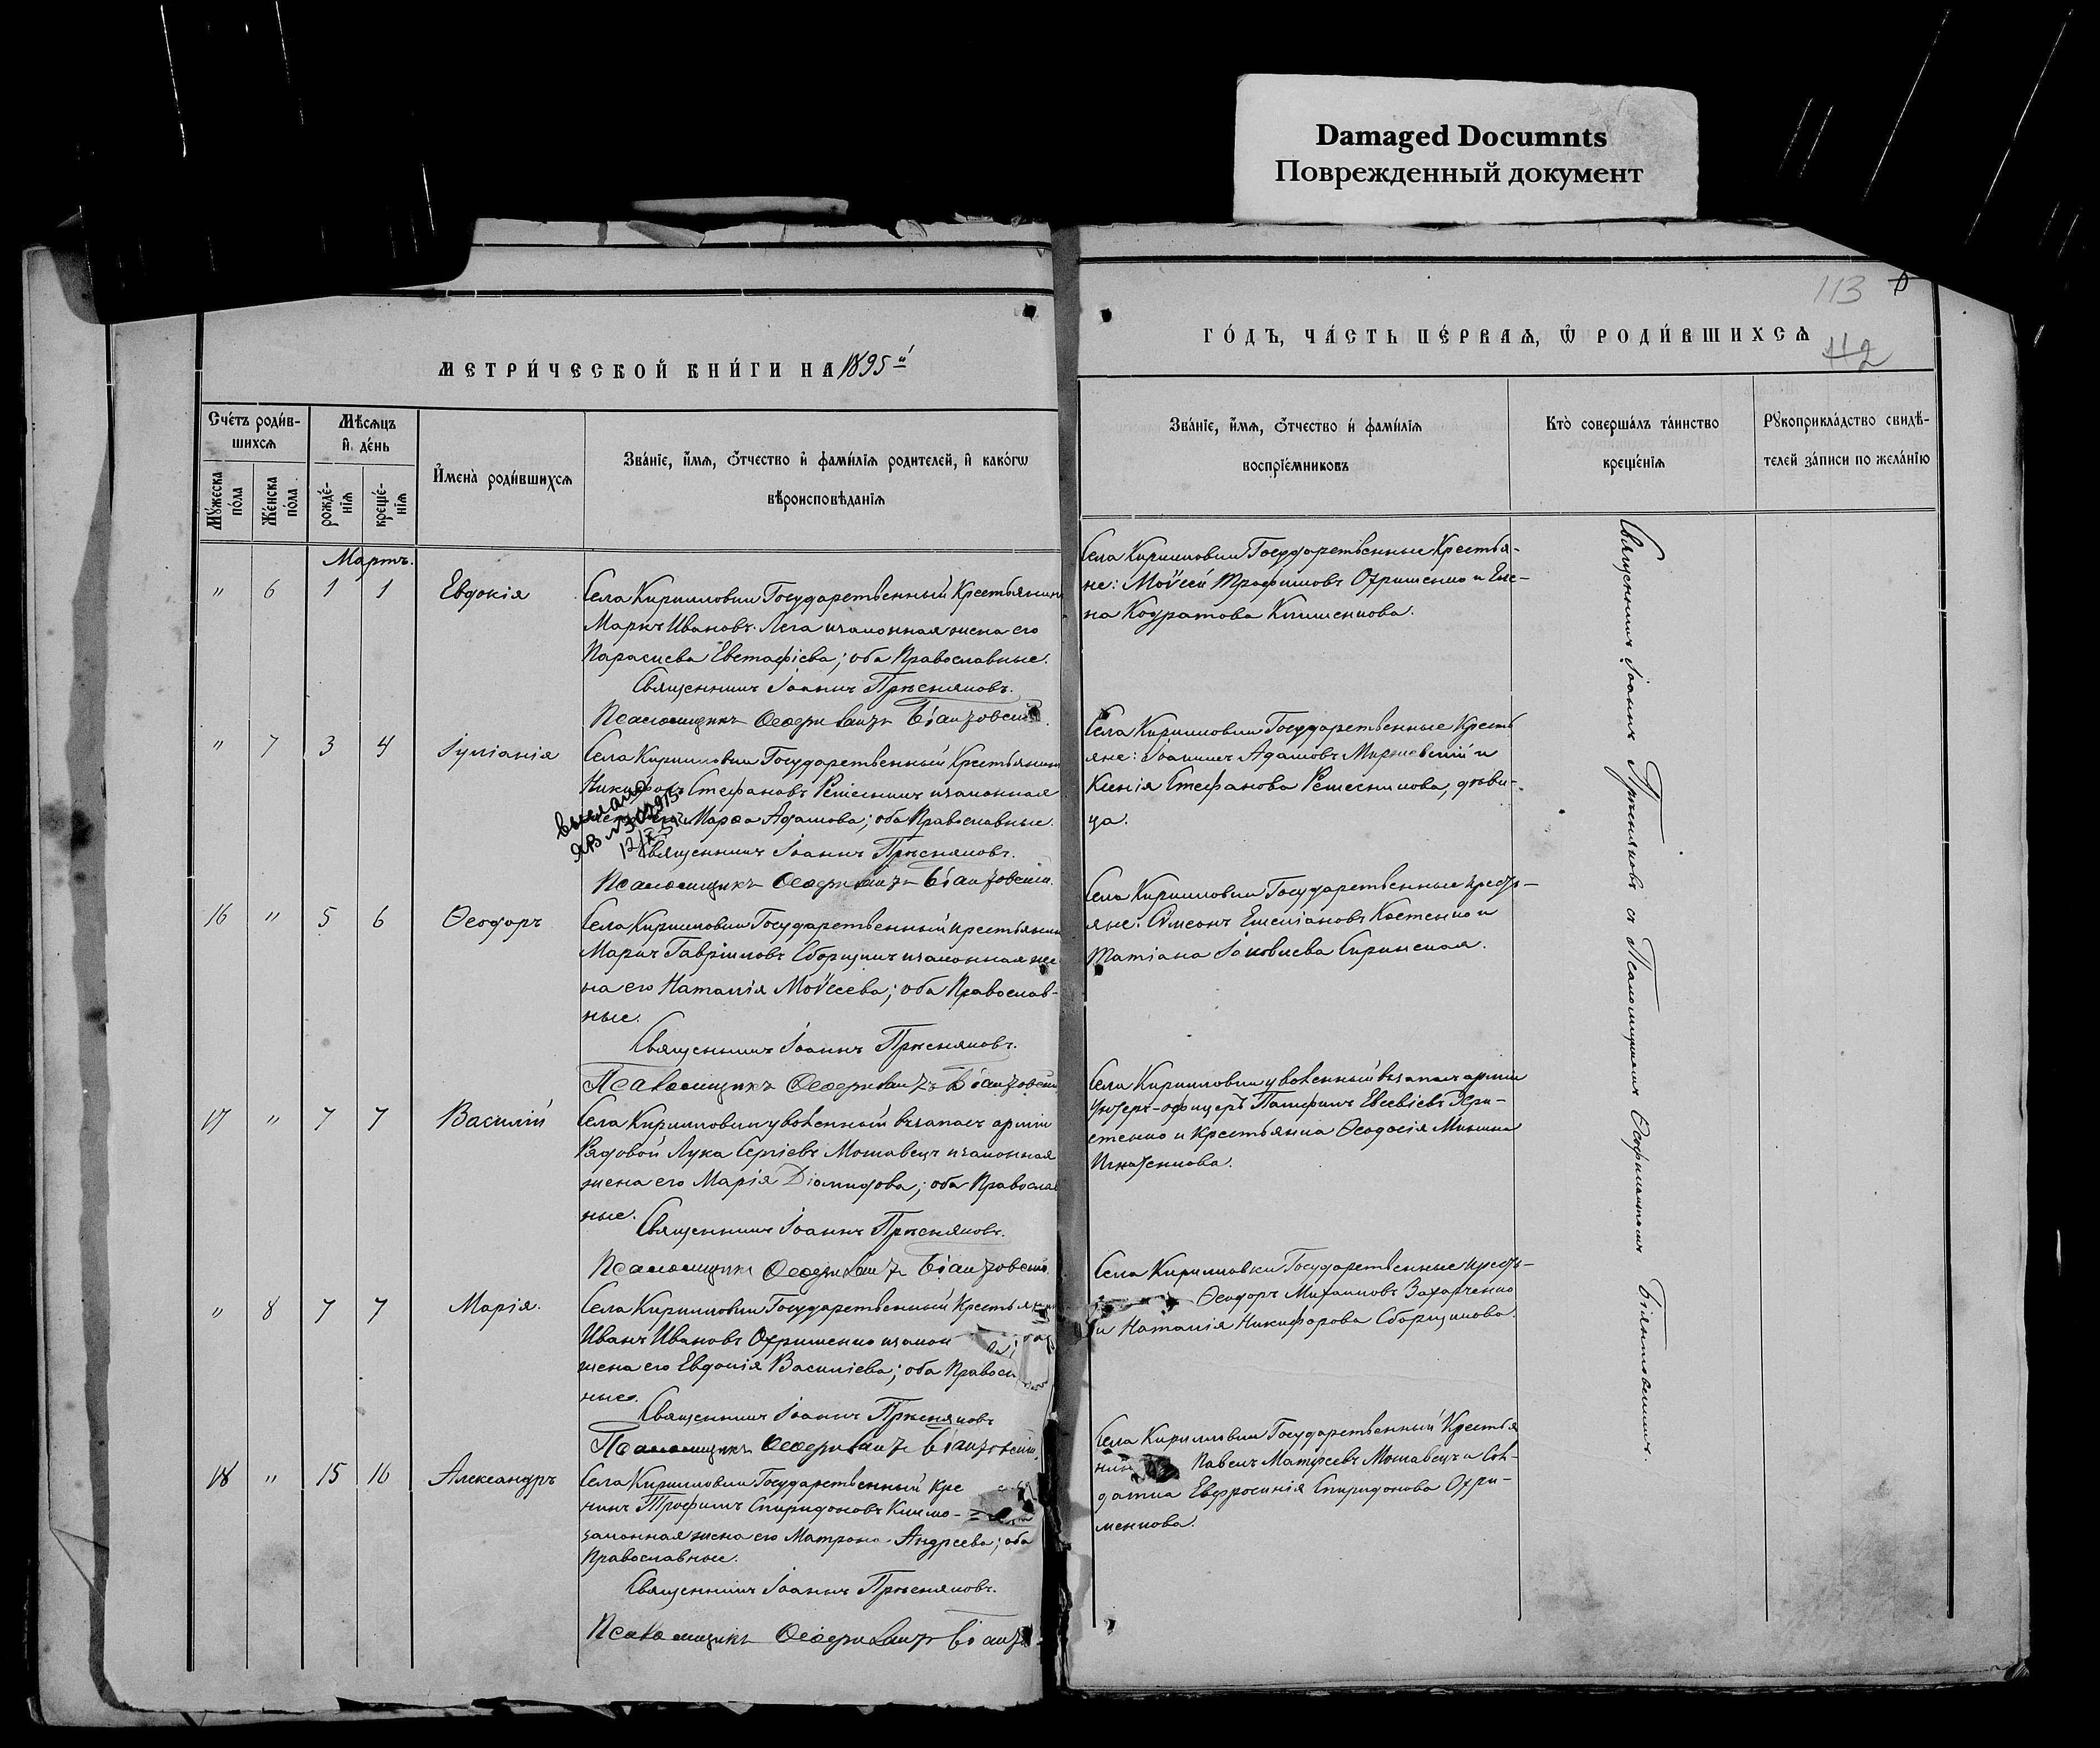 Damaged Documnts
Поврежденный документ
113
112
МЕТРИ́ЧЕСКОЙ КНИ́ГИ НА 1895й
ГО́ДЪ, ЧА́СТЬ ПЕ́РВАѦ, Ѿ РОДИ́ВШИХСѦ
Сче́тъ роди́в-
шихсѧ
Мѣ́сѧцъ
и҆ де́нь
Му́жеска по́ла
Же́нска по́ла
рожде́-
нїѧ
креще́-
нїѧ
И҆мена̀ роди́вшихсѧ
Зва́нїе, и҆́мѧ, ѻ҆́тчество и҆ фами́лїѧ родителей, и҆ како́гѡ
вѣроисповѣ́данїѧ
Зва́нїе, и҆́мѧ, ѻ҆́тчество и҆ фами́лїѧ
воспрїе́мниковъ
Кто̀ соверша́лъ та́инство
креще́нїѧ
Рꙋкоприкла́дство свидѣ́-
телей за́писи по жела́нїю
Мартъ.
" 6 1 1 Евдокія
Села Кирилловки Государственный Крестьянинъ
Маркъ Ивановъ Лега и законная жена его
Параскева Евстафіева; оба Православные.
Священникъ Іоаннъ Прѣсняковъ.
Псаломщикъ
Села Кирилловки Государственные Крестья-
не: Моѵсей Трофимовъ Охрименко и Еле-
на Кодратова Клименкова.
" 7 3 4 Іуліанія
Села Кирилловки Государственный Крестьянинъ
Никифоръ Стефановъ Решетникъ и законная
жена его Марѳа Адамова; оба Православные.
выслано
12/X
Священникъ Іоаннъ Прѣсняковъ.
Псаломщикъ
Села Кирилловки Государственные Кресть
яне: Іоаннъ Адамовъ и
Ксенія Стефанова Решетникова, дѣви-
ца.
16 " 5 6 Ѳеодоръ
Села Кирилловки Государственный крестьянинъ
Маркъ Гавріиловъ Сборщикъ и законная же-
на его Наталія Моѵсеева; оба Православ-
ные.
Священникъ Іоаннъ Прѣсняковъ.
Псаломщикъ
Села Кирилловки Государственные кресть-
яне: Сѵмеонъ Емеліановъ Костенко и
Татіана Іаковлева
17 " 7 7 Василій
Села Кирилловки уволенный въ запасъ арміи
Рядовой Лука Сергіевъ Моставецъ и законная
жена его Марія Діомидова; оба Православ
ные.
Священникъ Іоаннъ Прѣсняковъ.
Псаломщикъ
Села Кирилловки уволенный въ запасъ арміи
Унтеръ-офицеръ Памфилъ Евсевіевъ Хри-
стенко и Крестьянка Ѳеодосія Минина
Игнатенкова.
" 8 7 7 Марія.
Села Кирилловки Государственный Крестьянинъ
Иванъ Ивановъ Охрименко и закон
жена его Евдокія Василіева; оба Правосл
ные.
Священникъ Іоаннъ Прѣсняковъ
Псаломщикъ
Села Кирилловки Государственные кресть-
Ѳеодоръ Михаиловъ Захарченко
и Наталія Никифорова Сборщикова.
18 " 15 16 Александръ
Села Кирилловки Государственный Кре
нинъ Трофимъ Спиридоновъ Климо-
законная жена его Матрона Андреева; оба
Православные.
Священникъ Іоаннъ Прѣсняковъ.
Псаломщикъ
Села Кирилловки Государственный Крестья
нинъ Павелъ Матѳеевъ Моставецъ и Сол-
датка Евфросинія Спиридонова Охри-
менкова.
Священникъ Іоаннъ Прѣсняковъ съ Псаломщикомъ Ѳеофилактомъ Біянтовскимъ.